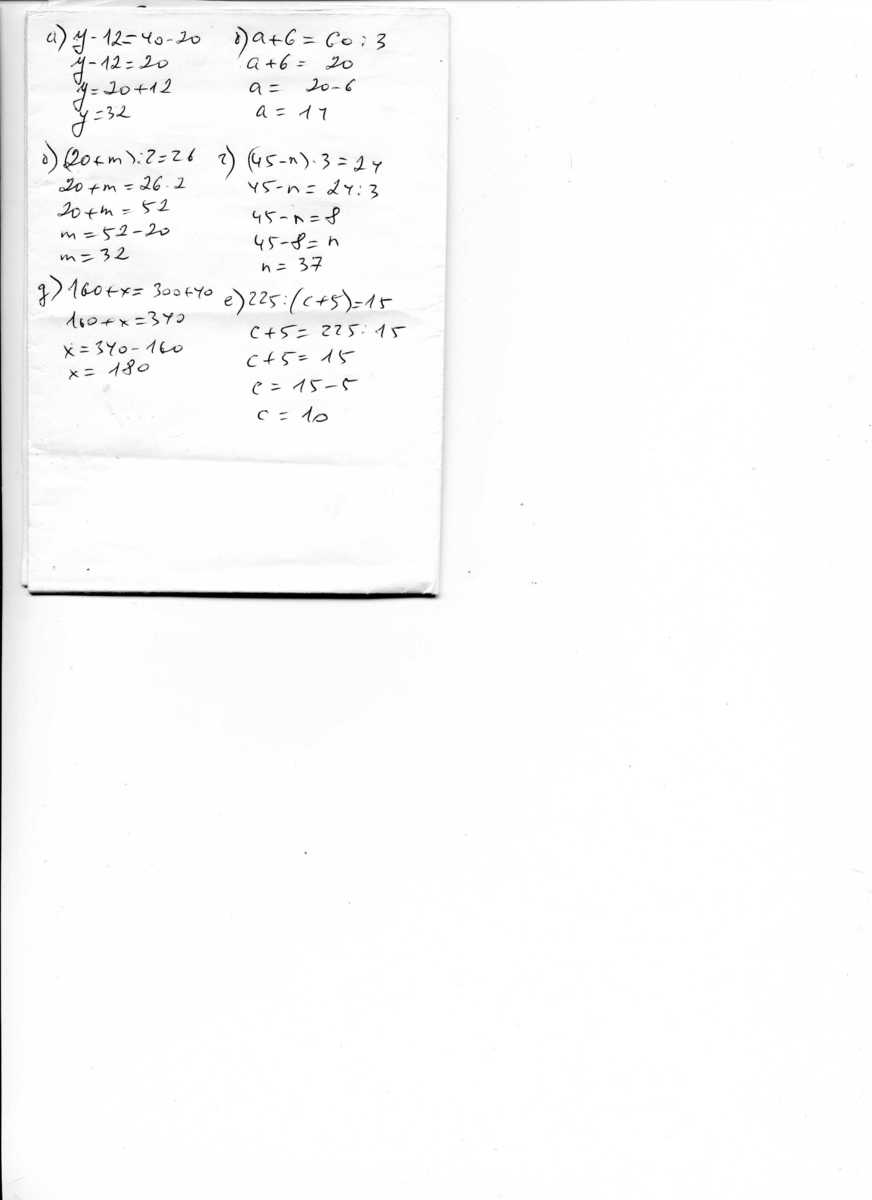 а) y - 12 = 40 - 20
y - 12 = 20
y = 20 + 12
y = 32
б) a + 6 = 60 : 3
a + 6 = 20
a = 20 - 6
a = 14
в) (20 + m) : 2 = 26
20 + m = 26 · 2
20 + m = 52
m = 52 - 20
m = 32
г) (45 - n) · 3 = 24
45 - n = 24 : 3
45 - n = 8
45 - 8 = n
n = 37
д) 160 + x = 300 + 40
160 + x = 340
x = 340 - 160
x = 180
е) 225 : (c + 5) = 15
c + 5 = 225 : 15
c + 5 = 15
c = 15 - 5
c = 10